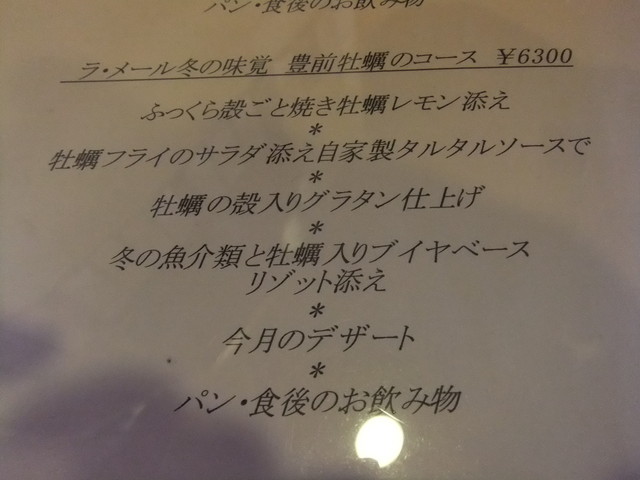 パン・食後のお飲み物
ラ・メール冬の味覚 豊前牡蠣のコース ¥6300
ふっくら殻ごと焼き牡蠣レモン添え
*
牡蠣フライのサラダ添え自家製タルタルソースで
*
牡蠣の殻入りグラタン仕上げ
*
冬の魚介類と牡蠣入りブイヤベース
リゾット添え
*
今月のデザート
*
パン・食後のお飲み物